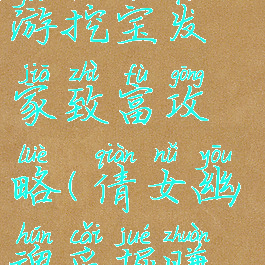 游挖宝发
jiā zhì fù gōng
家致富攻
lüè qiàn nǚ yōu
略(倩女幽
hún cǎi jué zhuàn
魂采掘赚